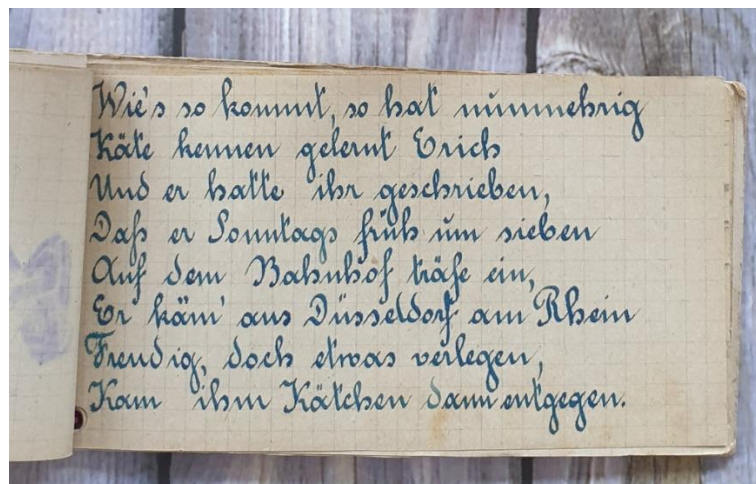 Wie's so kommt, so hat nunmehrig
Käte kennen gelernt Erich
Und er hatte ihr geschrieben,
Daß er Sonntags früh um sieben
Auf dem Bahnhof träfe ein,
Er käm' aus Düsseldorf am Rhein
Freudig, doch etwas verlegen,
Kam ihm Kätchen dann entgegen.